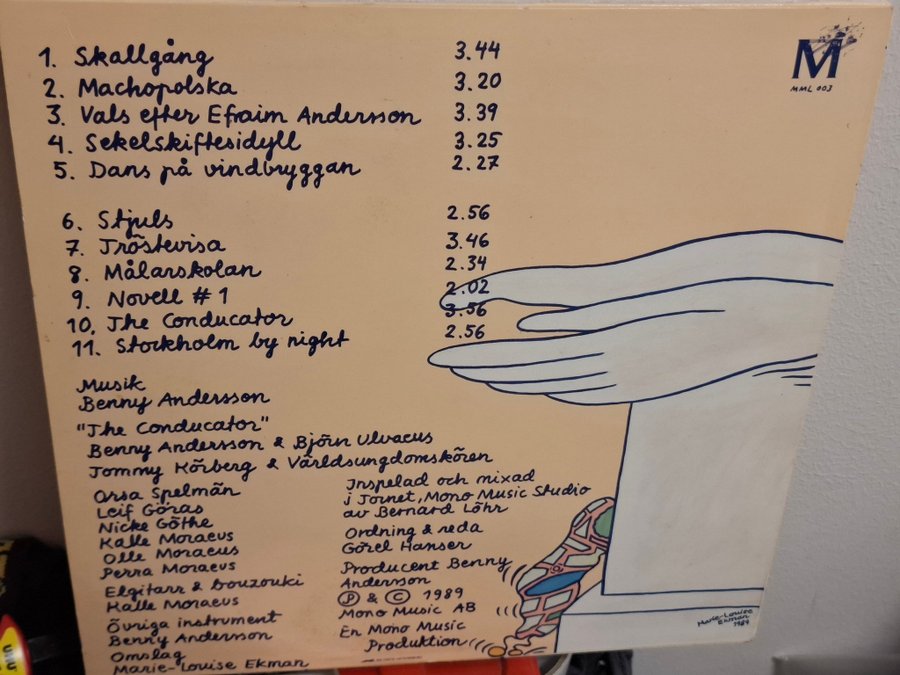 1. Skallgång 3.44
2. Machopolska 3.20
3. Vals efter Efraim Andersson 3.39
4. Sekelskiftesidyll 3.25
5. Dans på vindbryggan 2.27
6. Stjuls 2.56
7. Tröstevisa 3.46
8. Målarskolan 2.34
9. Novell # 1 2.02
10. The Conducator 3.56
11. Stockholm by night 2.56
M
MML 003
Musik
Benny Andersson
"The Conducator"
Benny Andersson & Björn Ulvaeus
Tommy Körberg & Världsungdomskören
Orsa Spelmän
Leif Göras
Nicke Göthe
Kalle Moraeus
Olle Moraeus
Perra Moraeus
Elgitarr & bouzouki
Kalle Moraeus
Övriga instrument
Benny Andersson
Omslag
Marie-Louise Ekman
Inspelad och mixad
i Tornet, Mono Music Studio
av Bernard Löhr
Ordning & reda
Görel Hanser
Producent Benny
Andersson
Ⓟ & © 1989
Mono Music AB
En Mono Music
Produktion
Marie-Louise
Ekman
1989